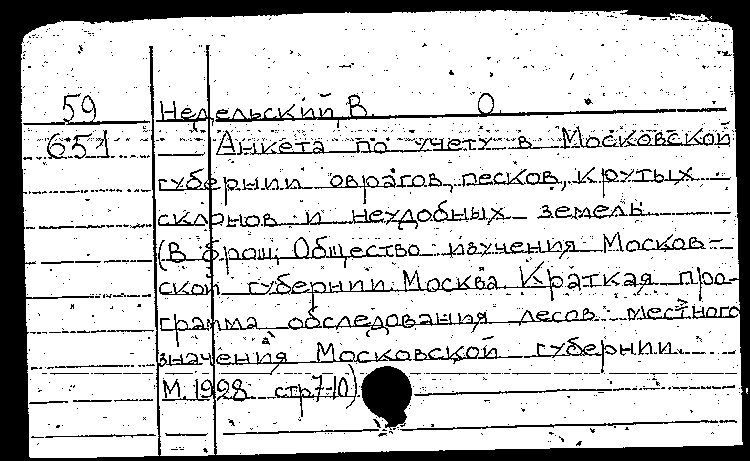 59 Недельский, В. О
651 Анкета по учету в Московской
губернии оврагов, песков, крутых
склонов и неудобных земель
(В брош: Общество изучения Москов-
ской губернии. Москва. Краткая про-
грамма обследования лесов местного
значения Московской губернии.
М. 1928 стр 7-10)